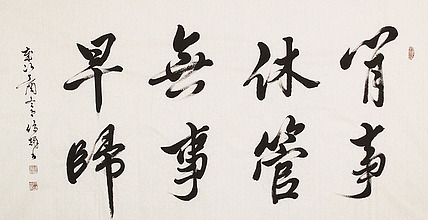 閒事
休管
無事
早歸